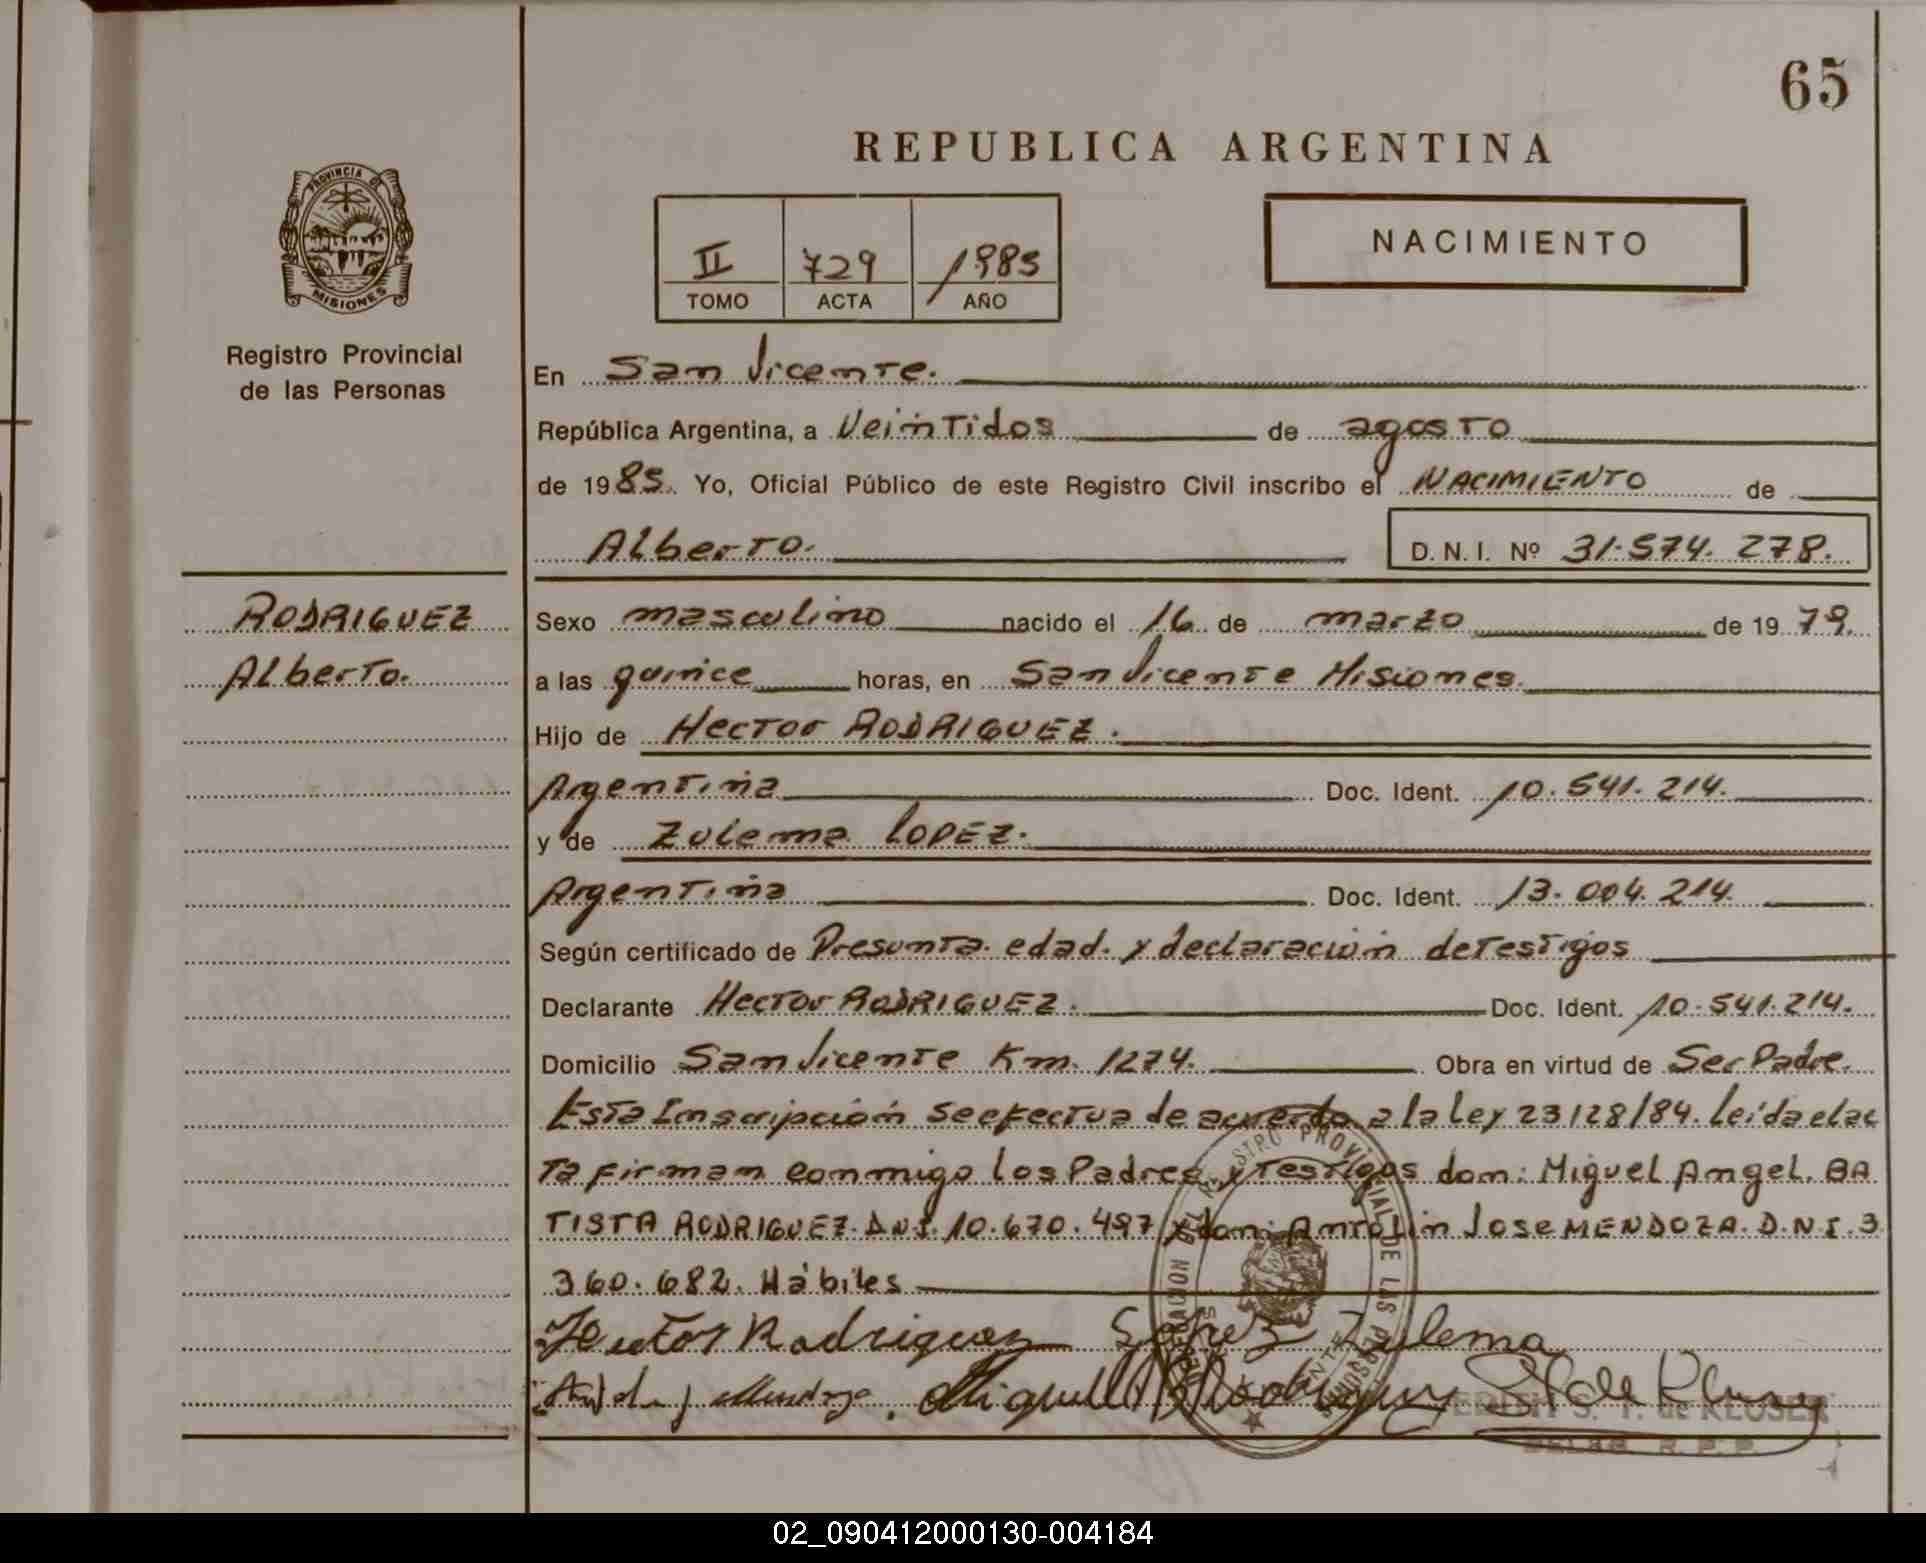 65
REPUBLICA ARGENTINA
PROVINCIA DE
MISIONES
Registro Provincial
de las Personas
II 729 1985
TOMO ACTA AÑO
NACIMIENTO
En San Vicente.
República Argentina, a Veintidos de agosto
de 1985. Yo, Oficial Público de este Registro Civil inscribo el NACIMIENTO de
Alberto. D. N. I. Nº 31.574.278.
RODRIGUEZ
Alberto.
Sexo masculino nacido el 16 de marzo de 1979.
a las quince horas, en San Vicente Misiones.
Hijo de Hector RODRIGUEZ.
Argentina Doc. Ident. 10.541.214.
y de Zulema LOPEZ.
Argentina Doc. Ident. 13.004.214.
Según certificado de Presunta edad. y declaración de Testigos
Declarante Hector RODRIGUEZ. Doc. Ident. 10.541.214.
Domicilio San Vicente Km. 1274. Obra en virtud de Ser Padre.
Esta Inscripción se efectua de acuerdo a la Ley 23128/84. Leída el ac
ta firman conmigo los Padres y Testigos don: Miguel Angel. BA
TISTA RODRIGUEZ. D.N.I. 10.670.497 y don: Antolin Jose MENDOZA. D.N.I. 3
360.682. Hábiles
Hector Rodriguez Zulema
Mendoza. Miguel Rodriguez
EDITH S. F. de KLOSER
02_090412000130-004184